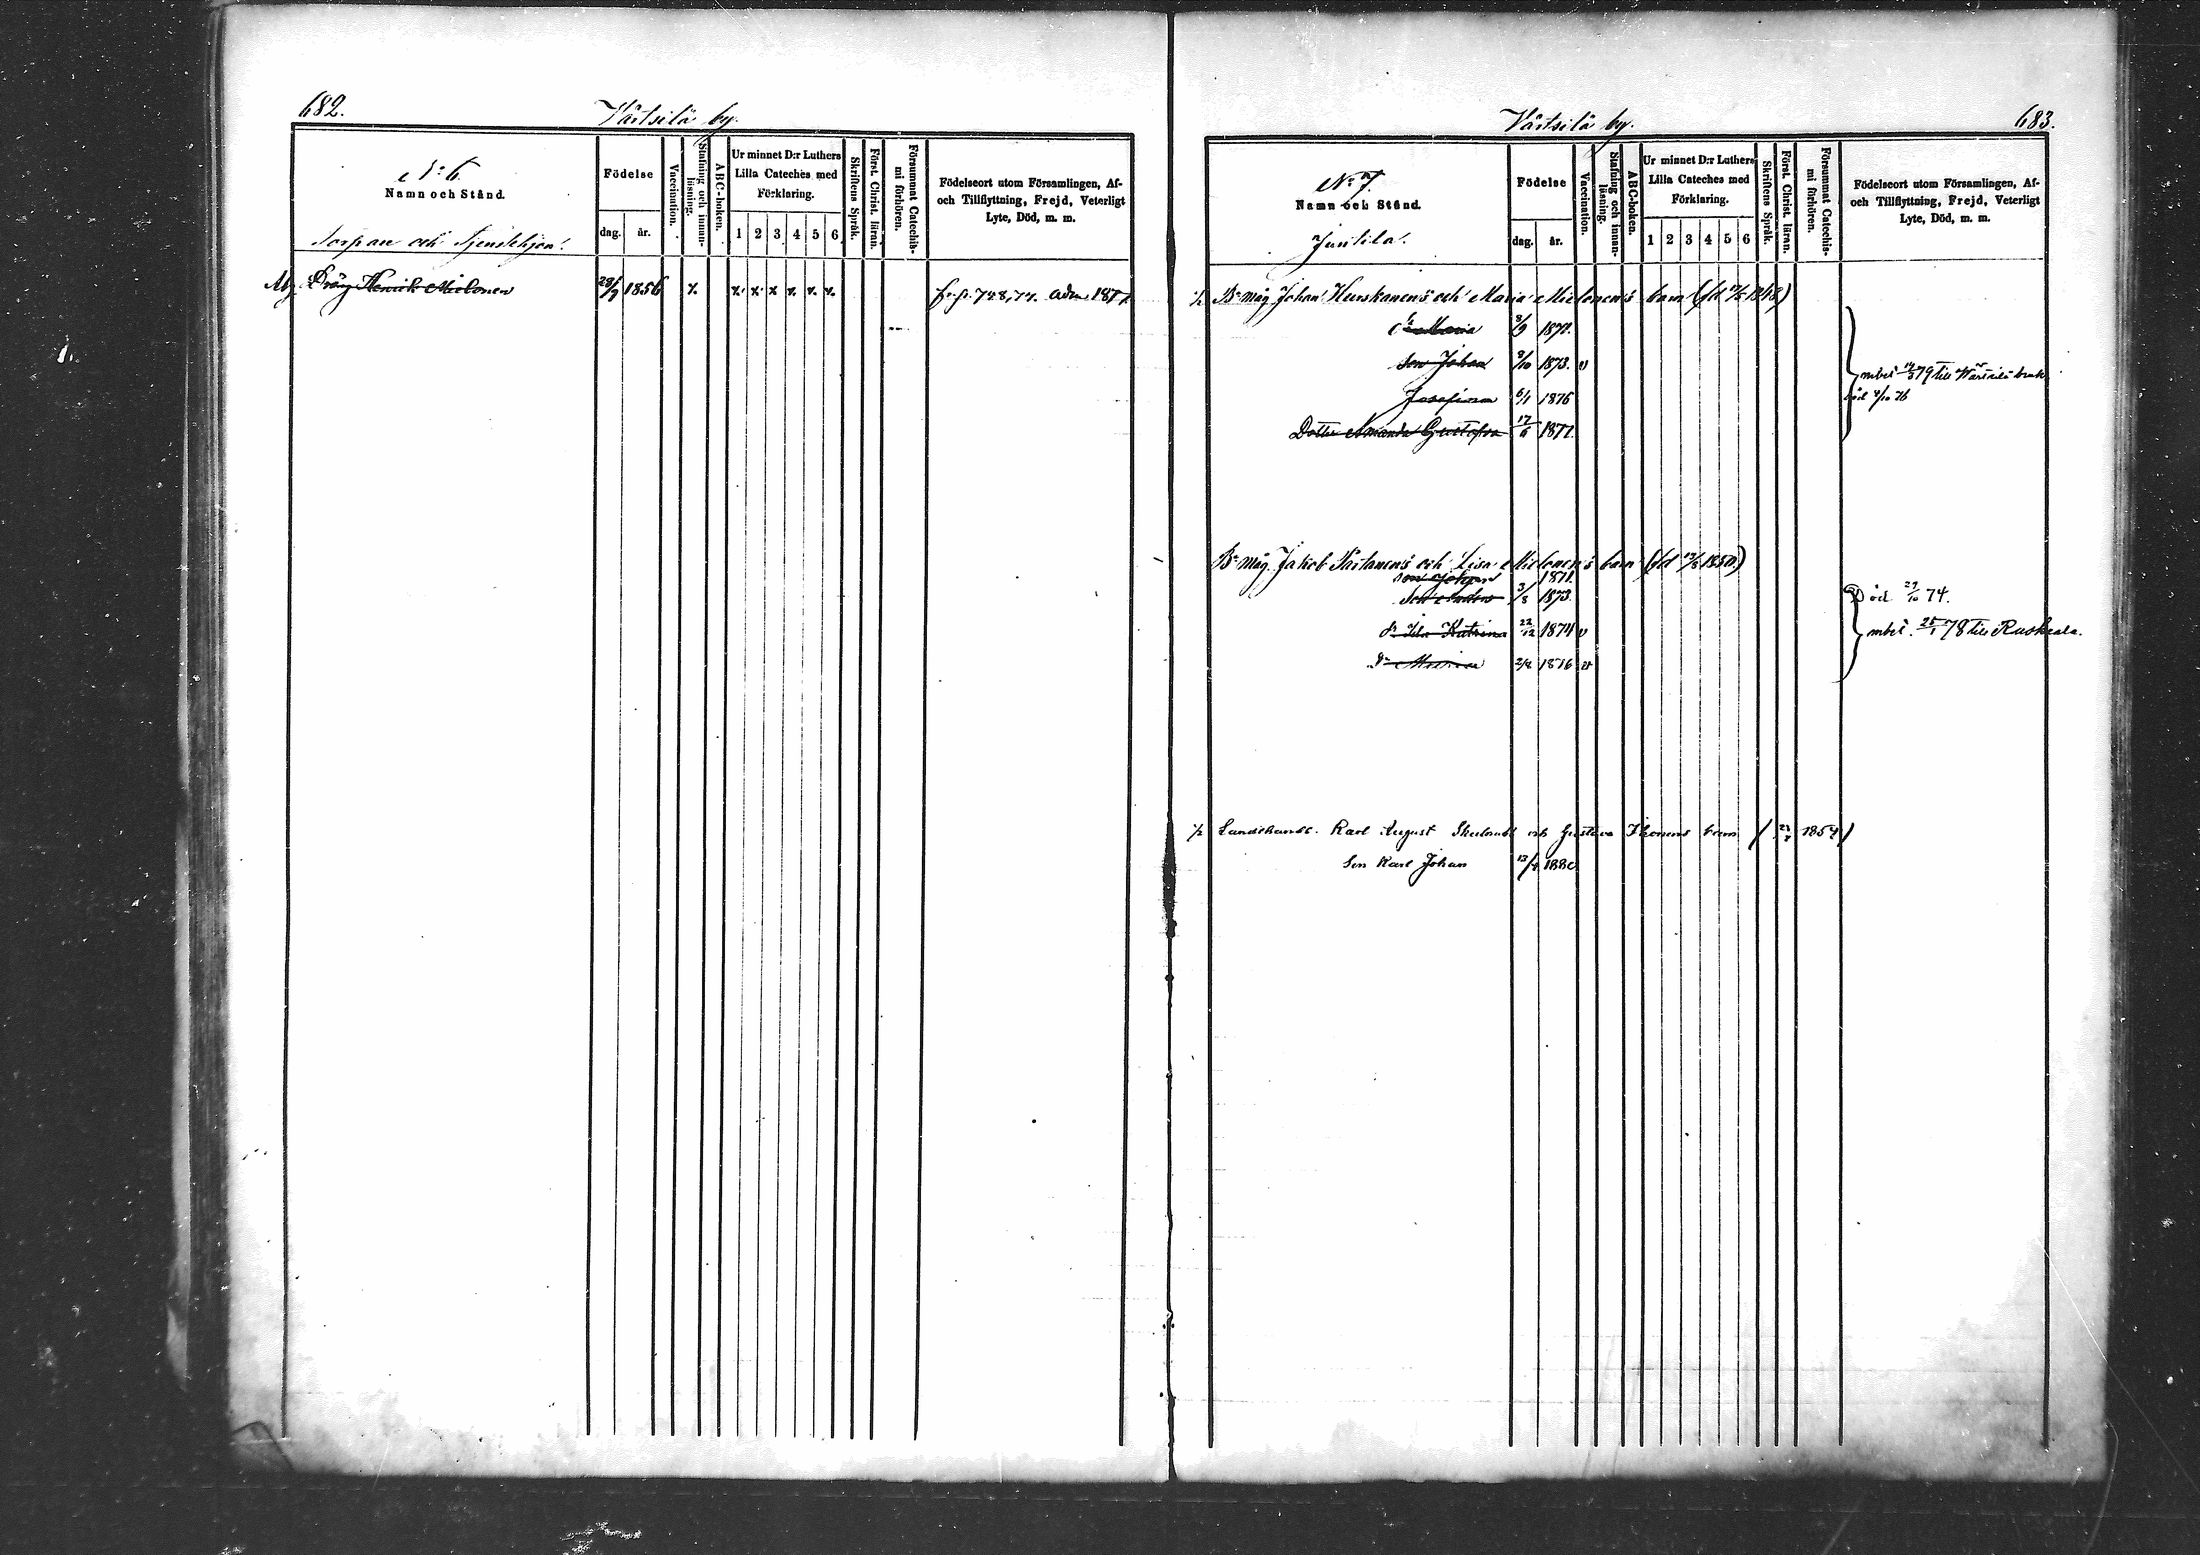 682.
Värtsilä by.
N:o 6
Namn och Stånd.
Torpare och Tjenstehjon.
Födelse
dag. år.
Vaccination.
Stafning och innan-
läsning.
ABC-boken.
Ur minnet D:r Luthers
Lilla Cateches med
Förklaring.
1 2 3 4 5 6
Skriftens Språk.
Först. Christ. läran.
Försummat Catechis-
mi förhören.
Födelseort utom Församlingen, Af-
och Tillflyttning, Frejd, Veterligt
Lyte, Död, m. m.
Dräng Henrik Mielonen 28/9 1856 x x x x x x x fr. p. 728, 74. adm 1877
Värtsilä by.
683.
N:o 7.
Namn och Stånd.
Juntila.
Födelse
dag. år.
Vaccination.
Stafning och innan-
läsning.
ABC-boken.
Ur minnet D:r Luthers
Lilla Cateches med
Förklaring.
1 2 3 4 5 6
Skriftens Språk.
Först. Christ. läran.
Försummat Catechis-
mi förhören.
Födelseort utom Församlingen, Af-
och Tillflyttning, Frejd, Veterligt
Lyte, Död, m. m.
Johan Hurskanen's och Maria Mielonen's barn
Maria 8/9 1872.
Son Johan 8/10 1873. v
till Wärtsilä bruk
Josefina 6/1 1876
död 4/10 76
Dotter Amanda Gustafva 1877.
Bs måg Jakob Partanen's och Lisa Mielonen's barn (fd 1850)
Son Johan 1871.
3/8 1873. Död 29/10 74.
dr Ida Katrina 22/12 1874 v mbet. 25/1 78 till Ruskeala.
1876 v
Karl August och Gustava Ikonens barn 1854)
Son Karl Johan 13/4 1880